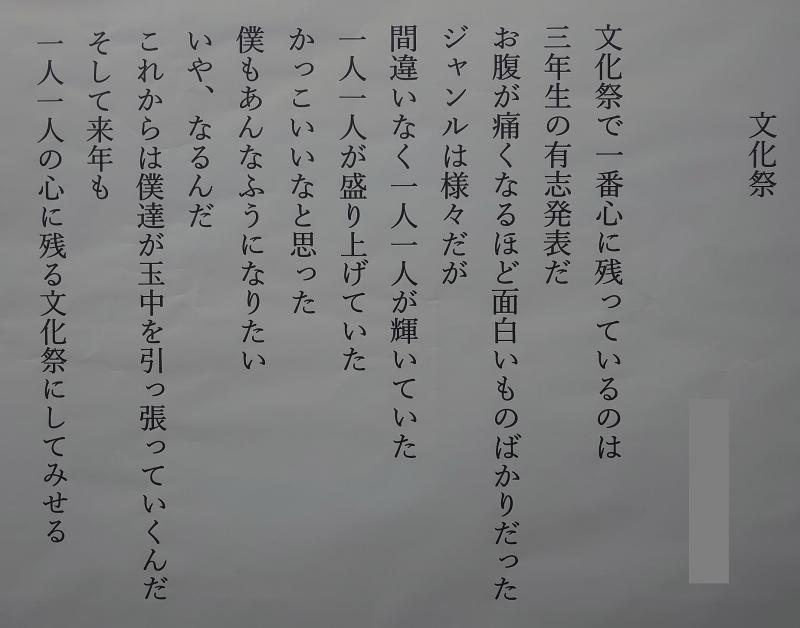 文化祭
文化祭で一番心に残っているのは
三年生の有志発表だ
お腹が痛くなるほど面白いものばかりだった
ジャンルは様々だが
間違いなく一人一人が輝いていた
一人一人が盛り上げていた
かっこいいなと思った
僕もあんなふうになりたい
いや、なるんだ
これからは僕達が玉中を引っ張っていくんだ
そして来年も
一人一人の心に残る文化祭にしてみせる